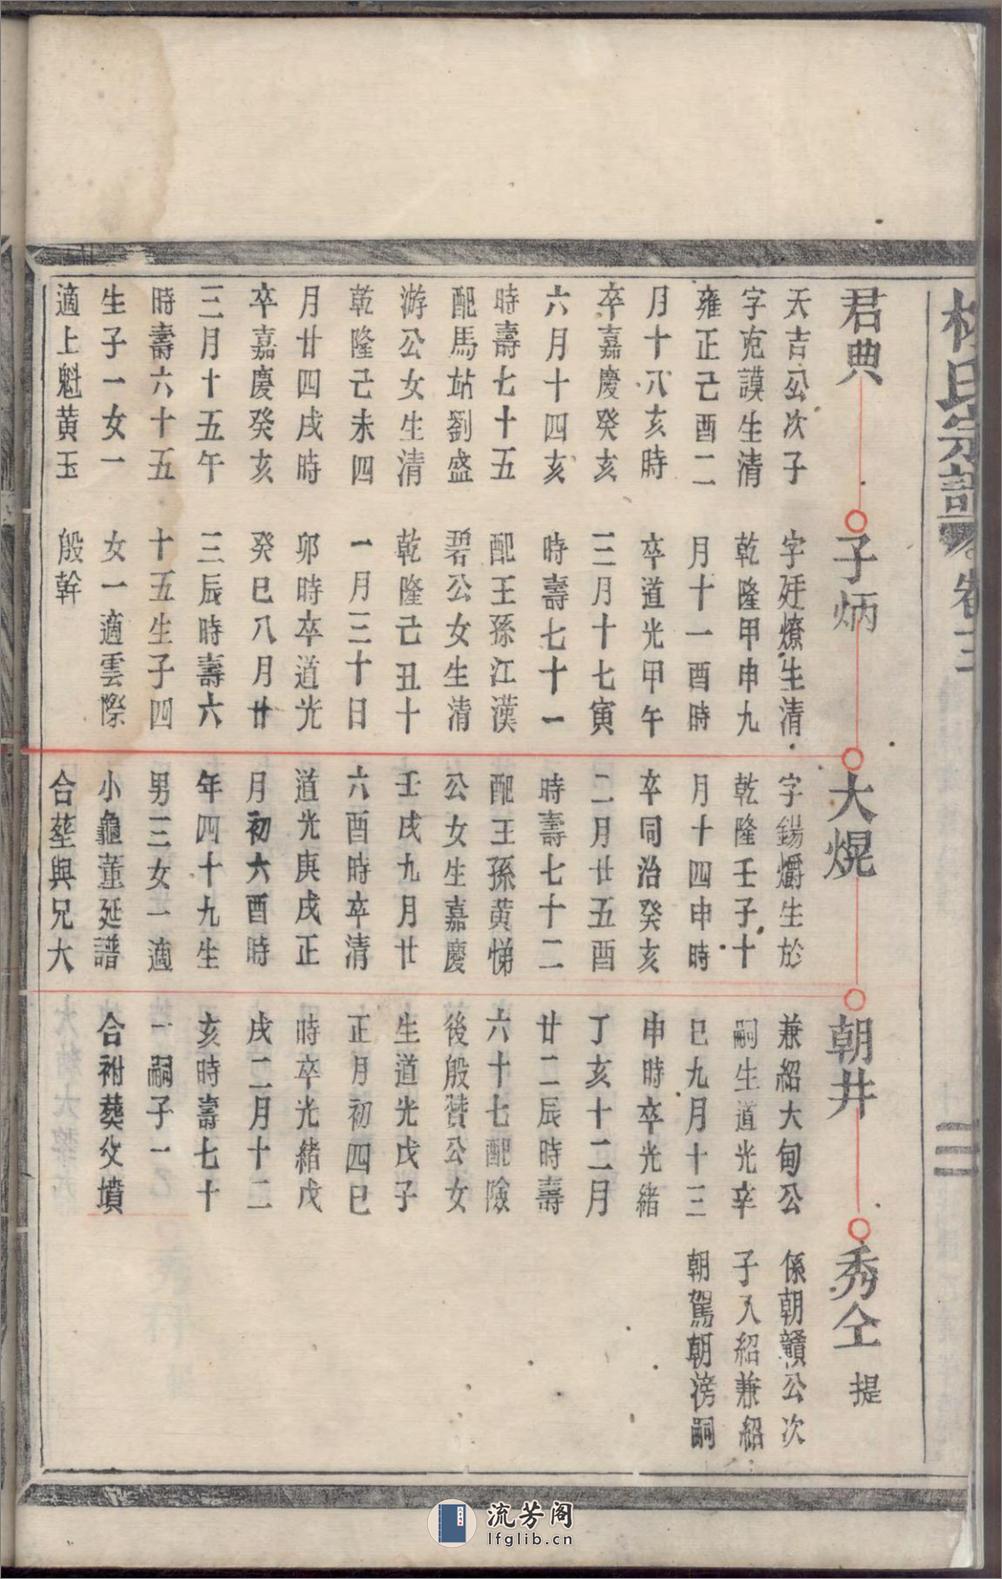 氏宗譜 卷三
君典
天吉公次子
字克謨生清
雍正己酉二
月十八亥時
卒嘉慶癸亥
六月十四亥
時壽七十五
配馬站劉盛
游公女生清
乾隆己未四
月廿四戌時
卒嘉慶癸亥
三月十五午
時壽六十五
生子一女一
適上魁黃玉
子炳
字廷燎生清
乾隆甲申九
月十一酉時
卒道光甲午
三月十七寅
時壽七十一
配王孫江漢
碧公女生清
乾隆己丑十
一月三十日
卯時卒道光
癸巳八月廿
三辰時壽六
十五生子四
女一適雲際
殷幹
大熀
字錫爵生於
乾隆壬子十
月十四申時
卒同治癸亥
二月廿五酉
時壽七十二
配王孫黃悌
公女生嘉慶
壬戌九月廿
六酉時卒清
道光庚戌正
月初六酉時
年四十九生
男三女一適
小龜董延譜
合塟與兄大
朝井
兼紹大甸公
嗣生道光辛
巳九月十三
申時卒光緒
丁亥十二月
廿二辰時壽
六十七配險
後殷贊公女
生道光戊子
正月初四巳
時卒光緒戊
戌二月十二
亥時壽七十
一嗣子一
合祔葬父墳
秀仝 提
係朝贛公次
子入紹兼紹
朝駕朝滂嗣
三
流芳阁
lfglib.cn